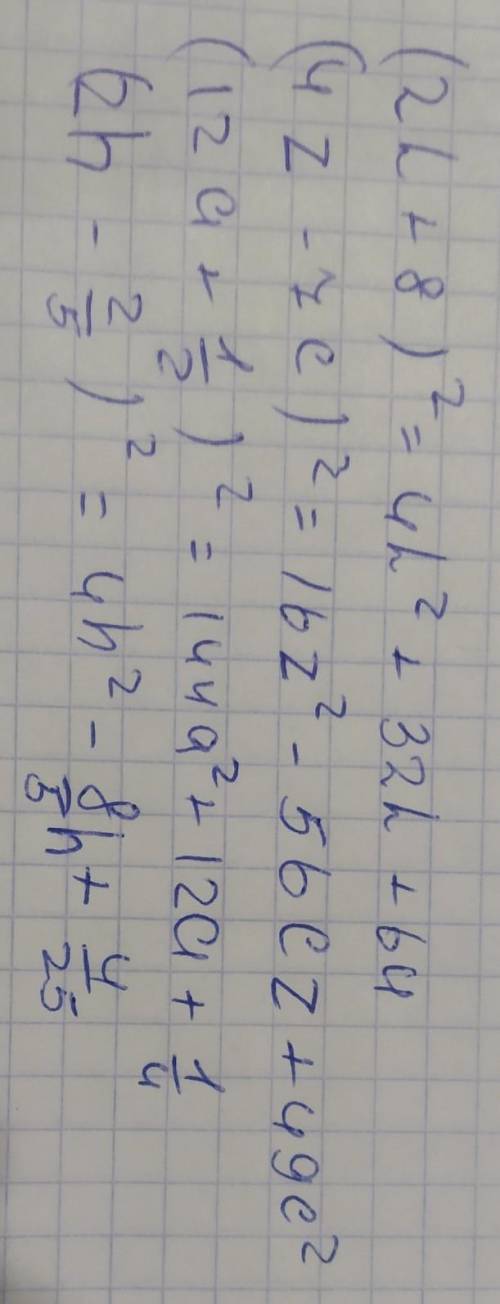 (2h + 8)² = 4h² + 32h + 64
(4z - 7c)² = 16z² - 56cz + 49c²
(12a + 1/2)² = 144a² + 12a + 1/4
(2h - 2/5)² = 4h² - 8/5h + 4/25